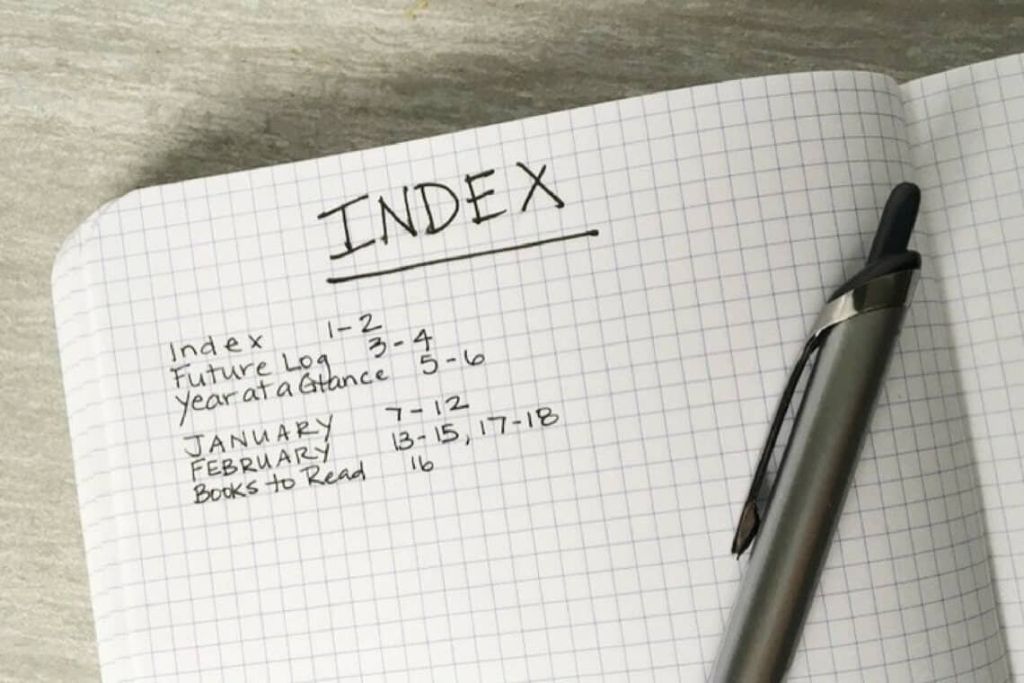 INDEX
Index 1-2
Future Log 3-4
Year at a Glance 5-6
JANUARY 7-12
FEBRUARY 13-15, 17-18
Books to Read 16